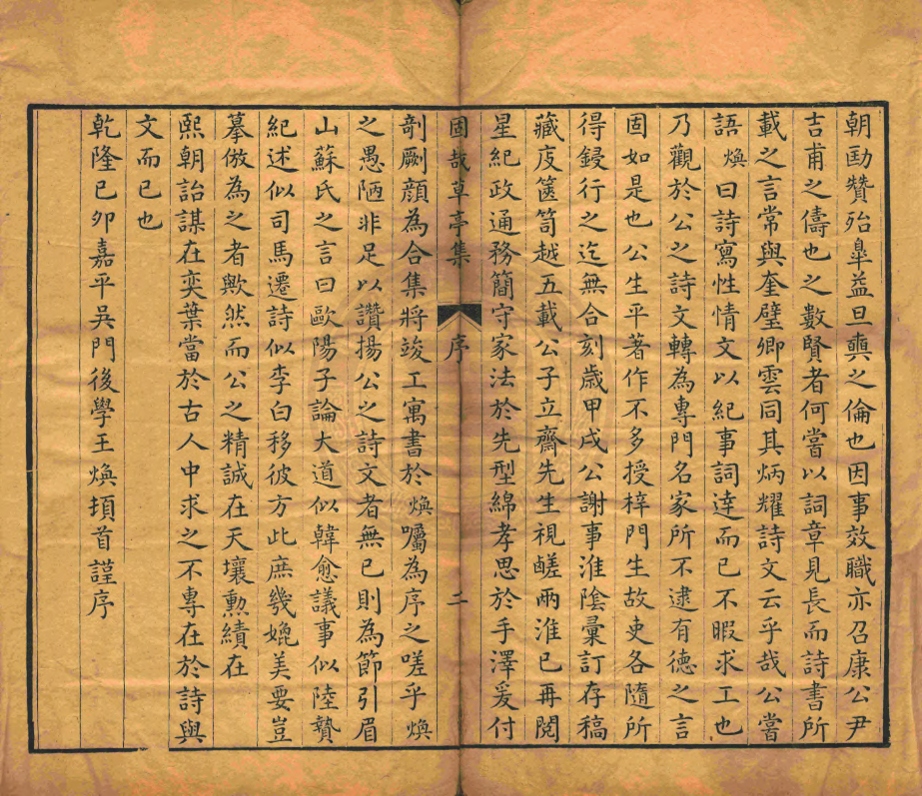 朝勛贊殆臯益旦奭之倫也因事效職亦召康公尹
吉甫之儔也之數賢者何嘗以詞章見長而詩書所
載之言常與奎璧卿雲同其炳耀詩文云乎哉公嘗
語煥曰詩寫性情文以紀事詞達而已不暇求工也
乃觀於公之詩文轉為專門名家所不逮有德之言
固如是也公生平著作不多授梓門生故吏各隨所
得鋟行之迄無合刻歲甲戌公謝事淮陰彙訂存稿
藏庋篋笥越五載公子立齋先生視鹺兩淮已再閱
星紀政通務簡守家法於先型綿孝思於手澤爰付
固哉草亭集 序 二
剞劂顏為合集將竣工寓書於煥囑為序之嗟乎煥
之愚陋非足以讚揚公之詩文者無已則為節引眉
山蘇氏之言曰歐陽子論大道似韓愈議事似陸贄
紀述似司馬遷詩似李白移彼方此庶幾媲美要豈
摹倣為之者歟然而公之精誠在天壤勲績在
熙朝詒謀在奕葉當於古人中求之不專在於詩與
文而已也
乾隆己卯嘉平吳門後學王煥頓首謹序